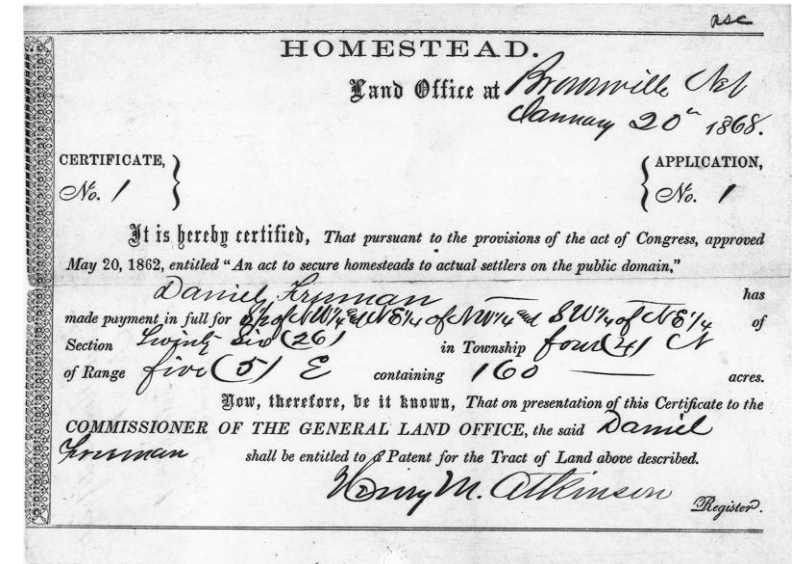 HOMESTEAD.
Land Office at Brownville Neb
January 20th 1868.
CERTIFICATE, No. 1 } { APPLICATION, No. 1
It is hereby certified, That pursuant to the provisions of the act of Congress, approved
May 20, 1862, entitled “An act to secure homesteads to actual settlers on the public domain,”
Daniel Freeman has
made payment in full for S½ of NW¼ and NE¼ of NW¼ and SW¼ of NE¼ of
Section Twenty Six (26) in Township four (4) N
of Range five (5) E containing 160 acres.
Now, therefore, be it known, That on presentation of this Certificate to the
COMMISSIONER OF THE GENERAL LAND OFFICE, the said Daniel
Freeman shall be entitled to a Patent for the Tract of Land above described.
Henry M. Atkinson
Register.